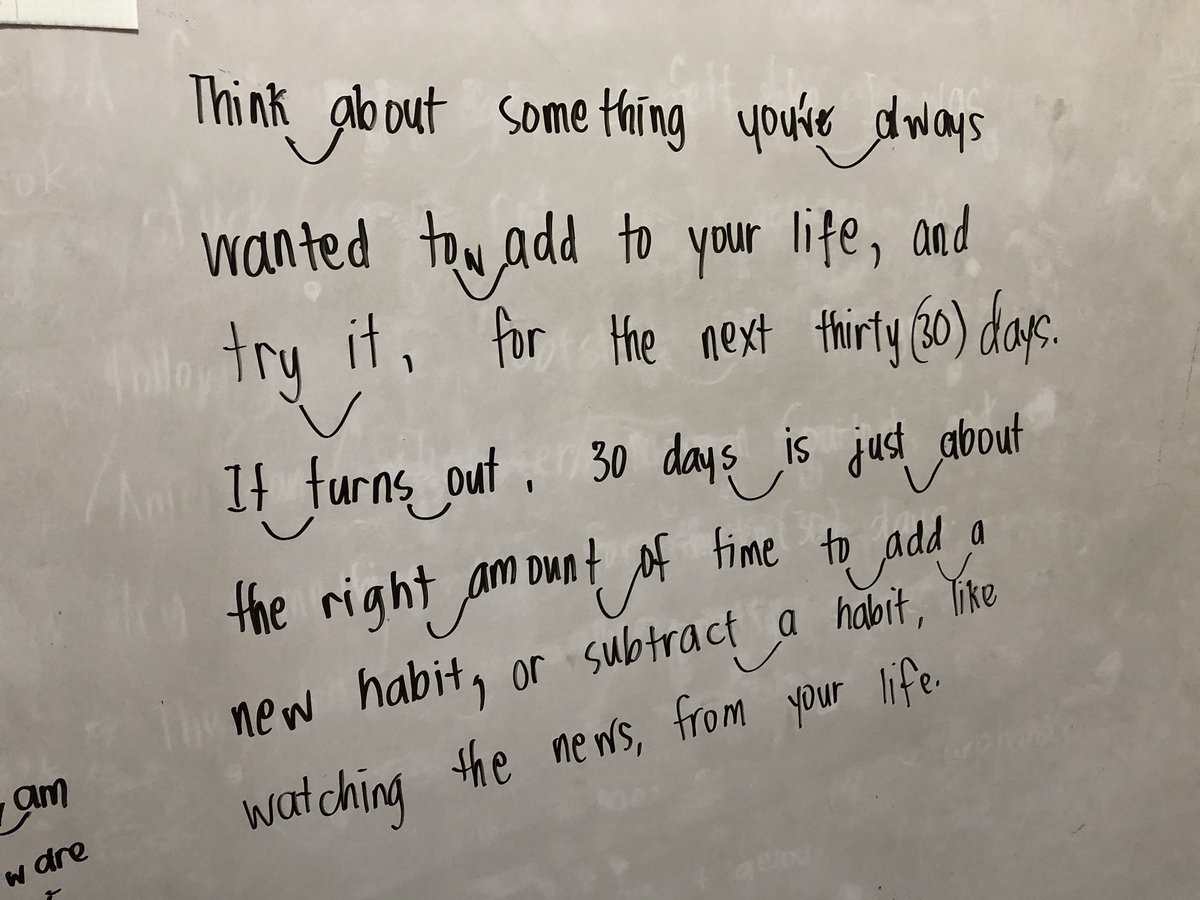 Think about something you've always
wanted to w add to your life, and
try it, for the next thirty (30) days.
It turns out, 30 days is just about
the right amount of time to add a
new habit, or subtract a habit, like
watching the news, from your life.
am
w are